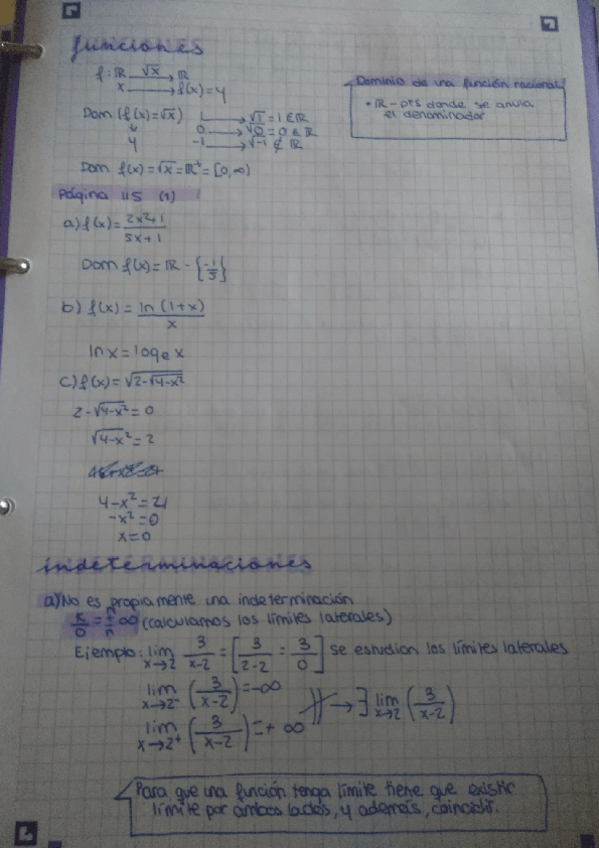 funciones
f: ℝ —√x→ ℝ
x ⟶ f(x)=y
Dominio de una función racional
• ℝ - pts donde se anula
el denominador
Dom (f(x)=√x) 1 ⟶ √1 = 1 ∈ ℝ
↓ 0 ⟶ √0 = 0 ∈ ℝ
y -1 ⟶ √-1 ∉ ℝ
Dom f(x)=√x = ℝ⁺ = [0,∞)
Página 115 (1)
a) f(x)= (2x²+1)/(5x+1)
Dom f(x)= ℝ - {-1/5}
b) f(x) = ln(1+x)/x
ln x = logₑ x
c) f(x)= √(2-√(4-x²))
2-√(4-x²) = 0
√(4-x²) = 2
4-x² = 4
-x² = 0
x=0
indeterminaciones
a) No es propiamente una indeterminación
k/0 = ± ∞ (calculamos los límites laterales)
Ejemplo: lim x→2 3/(x-2) = [3/(2-2) = 3/0] se estudian los límites laterales
lim x→2⁻ (3/(x-2)) = -∞
lim x→2⁺ (3/(x-2)) = + ∞ → ∃ lim x→2 (3/(x-2))
Para que una función tenga límite tiene que existir
límite por ambos lados, y además, coincidir.